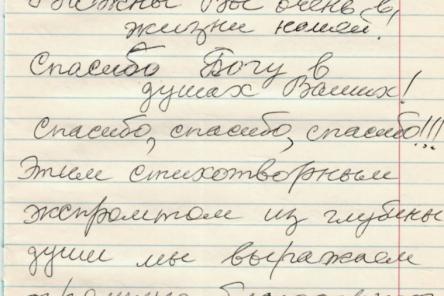 Вы очень в
жизни нашей!
Спасибо Богу в
душах Ваших!
Спасибо, спасибо, спасибо!!!
Этим стихотворным
экспромтом из глубины
души мы выражаем